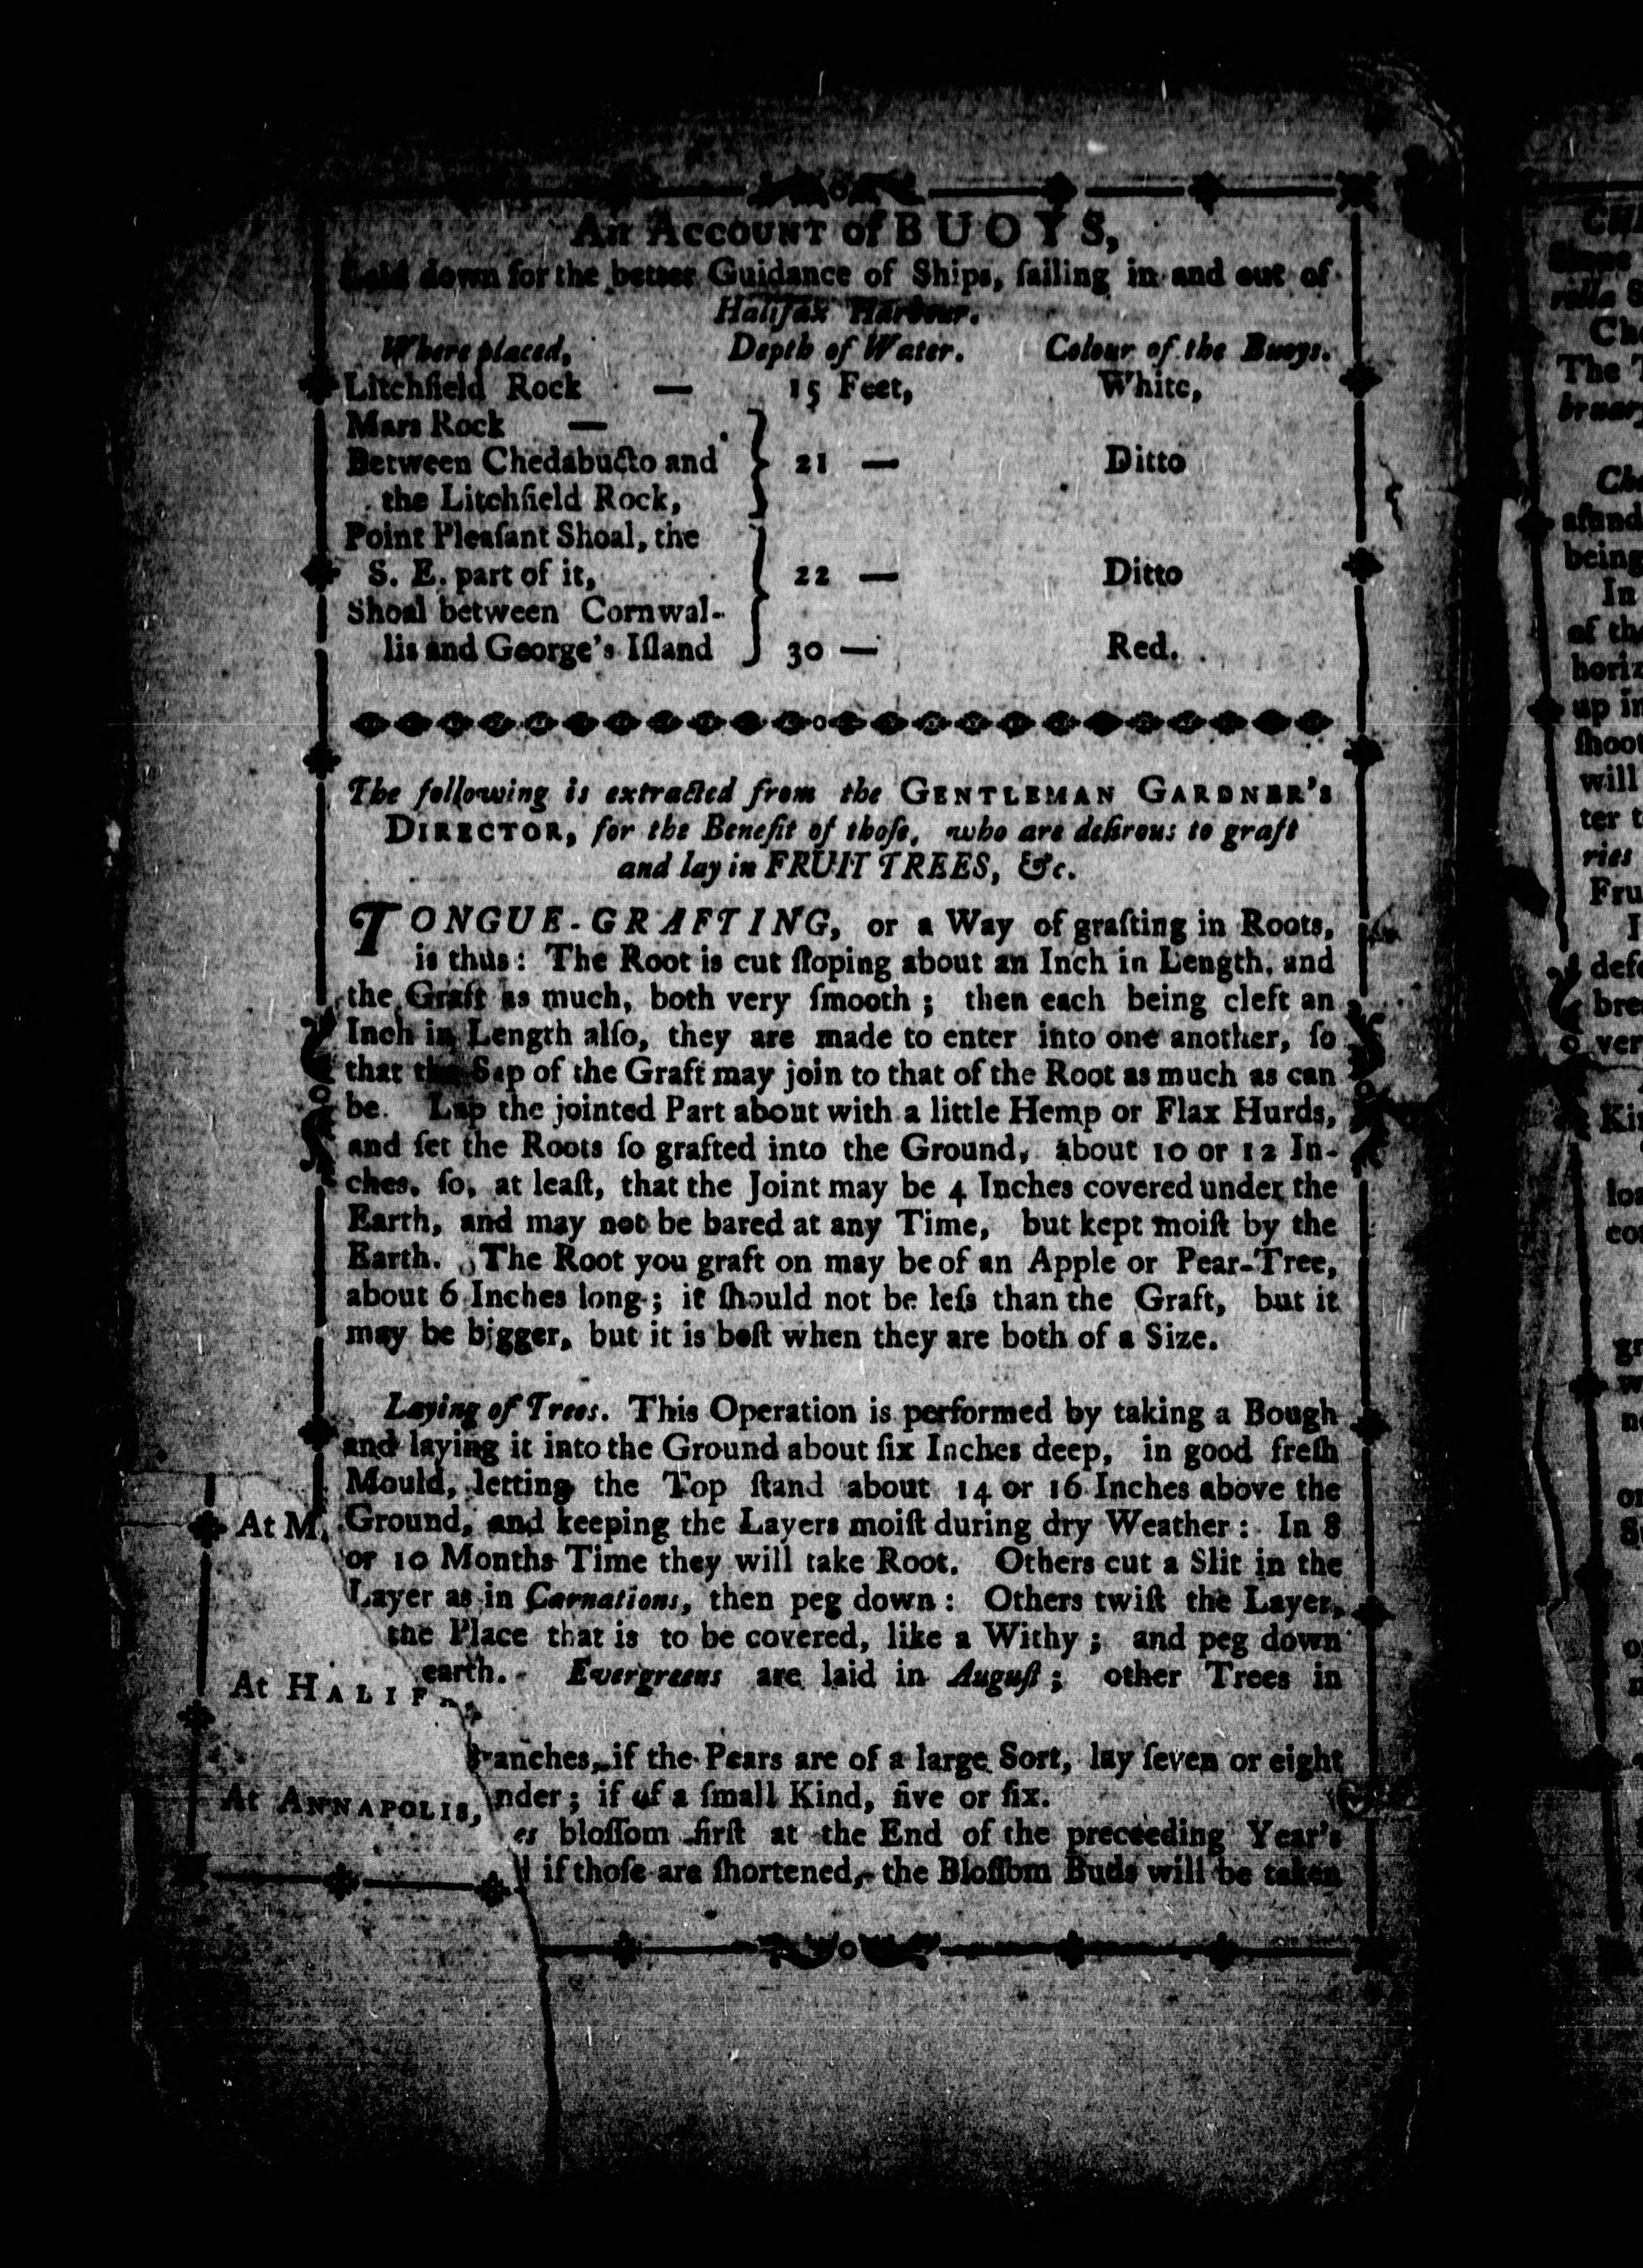 An ACCOUNT of BUOYS,
Laid down for the better Guidance of Ships, ſailing in and out of
Halifax Harbour.
Where placed, Depth of Water. Colour of the Buoys.
Litchfield Rock — 15 Feet, White,
Mars Rock —
Between Chedabucto and 21 — Ditto
the Litchfield Rock,
Point Pleaſant Shoal, the
S. E. part of it, 22 — Ditto
Shoal between Cornwal-
lis and George's Iſland 30 — Red.
The following is extracted from the GENTLEMAN GARDNER's
DIRECTOR, for the Benefit of thoſe, who are deſirous to graft
and lay in FRUIT TREES, &c.
TONGUE-GRAFTING, or a Way of grafting in Roots,
is thus: The Root is cut ſloping about an Inch in Length, and
the Graft as much, both very ſmooth; then each being cleft an
Inch in Length alſo, they are made to enter into one another, ſo
that the Sap of the Graft may join to that of the Root as much as can
be. Lap the jointed Part about with a little Hemp or Flax Hurds,
and ſet the Roots ſo grafted into the Ground, about 10 or 12 In-
ches, ſo, at leaſt, that the Joint may be 4 Inches covered under the
Earth, and may not be bared at any Time, but kept moiſt by the
Earth. The Root you graft on may be of an Apple or Pear-Tree,
about 6 Inches long; it ſhould not be leſs than the Graft, but it
may be bigger, but it is beſt when they are both of a Size.
Laying of Trees. This Operation is performed by taking a Bough
and laying it into the Ground about ſix Inches deep, in good freſh
Mould, letting the Top ſtand about 14 or 16 Inches above the
At M
Ground, and keeping the Layers moiſt during dry Weather: In 8
or 10 Months Time they will take Root. Others cut a Slit in the
Layer as in Carnations, then peg down: Others twiſt the Layer,
the Place that is to be covered, like a Withy; and peg down
earth. Evergreens are laid in Auguſt; other Trees in
At HALIF
ranches, if the Pears are of a large Sort, lay ſeven or eight
nder; if of a ſmall Kind, five or ſix.
At ANNAPOLIS,
es bloſſom firſt at the End of the preceeding Year's
if thoſe are ſhortened, the Bloſſom Buds will be taken